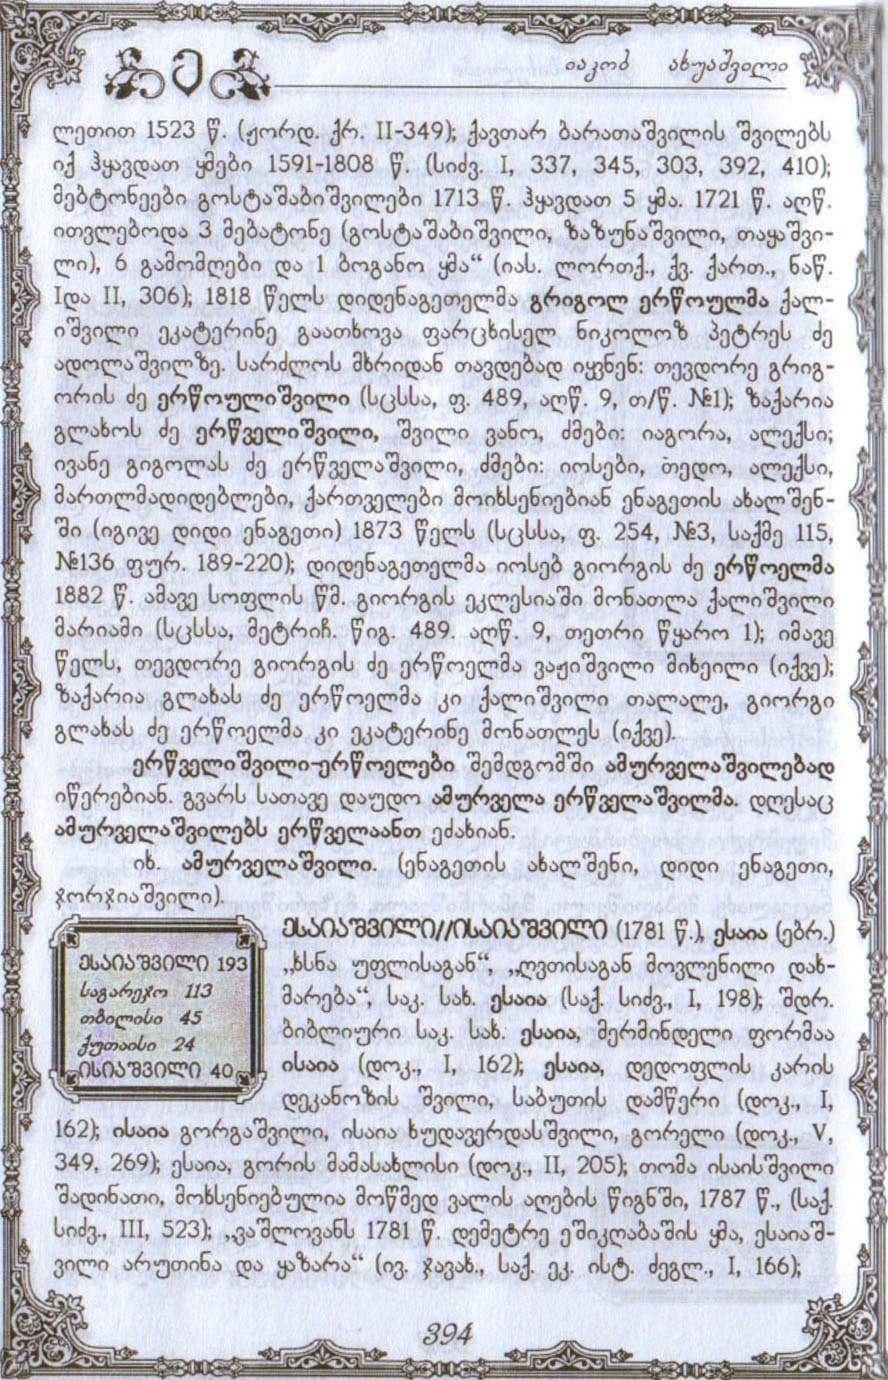 ე იაკობ ახუაშვილი
ლეთით 1523 წ. (ჟორდ. ქრ. II-349); ქავთარ ბარათაშვილის შვილებს
იქ ჰყავდათ ყმები 1591-1808 წ. (სიძვ. I, 337, 345, 303, 392, 410);
მებტონეები გოსტაშაბიშვილები 1713 წ. ჰყავდათ 5 ყმა. 1721 წ. აღწ.
ითვლებოდა 3 მებატონე (გოსტაშაბიშვილი, ზაზუნაშვილი, თაყაშვი-
ლი), 6 გამომღები და 1 ბოგანო ყმა“ (იას. ლორთქ., ქვ. ქართ., ნაწ.
Iდა II, 306); 1818 წელს დიდენაგეთელმა გრიგოლ ერწოულმა ქალ-
იშვილი ეკატერინე გაათხოვა ფარცხისელ ნიკოლოზ პეტრეს ძე
ადოლაშვილზე. სარძლოს მხრიდან თავდებად იყვნენ: თევდორე გრიგ-
ორის ძე ერწოულიშვილი (სცსსა, ფ. 489, აღწ. 9, თ/წ. №1); ზაქარია
გლახოს ძე ერწველიშვილი, შვილი ვანო, ძმები: იაგორა, ალექსი;
ივანე გიგოლას ძე ერწველაშვილი, ძმები: იოსები, თედო, ალექსი,
მართლმადიდებლები, ქართველები მოიხსენიებიან ენაგეთის ახალშენ-
ში (იგივე დიდი ენაგეთი) 1873 წელს (სცსსა, ფ. 254, №3, საქმე 115,
№136 ფურ. 189-220); დიდენაგეთელმა იოსებ გიორგის ძე ერწოელმა
1882 წ. ამავე სოფლის წმ. გიორგის ეკლესიაში მონათლა ქალიშვილი
მარიამი (სცსსა, მეტრიჩ. წიგ. 489. აღწ. 9, თეთრი წყარო 1); იმავე
წელს, თევდორე გიორგის ძე ერწოელმა ვაჟიშვილი მიხეილი (იქვე);
ზაქარია გლახას ძე ერწოელმა კი ქალიშვილი თალალე, გიორგი
გლახას ძე ერწოელმა კი ეკატერინე მონათლეს (იქვე).
ერწველიშვილი-ერწოელები შემდგომში ამურველაშვილებად
იწერებიან. გვარს სათავე დაუდო ამურველა ერწველაშვილმა. დღესაც
ამურველაშვილებს ერწველაანთ ეძახიან.
იხ. ამურველაშვილი. (ენაგეთის ახალშენი, დიდი ენაგეთი,
ჯორჯიაშვილი).
ესაიაშვილი 193
საგარეჯო 113
თბილისი 45
ქუთაისი 24
ისიაშვილი 40
ესაიაშვილი//ისაიაშვილი (1781 წ.), ესაია (ებრ.)
„ხსნა უფლისაგან“, „ღვთისაგან მოვლენილი დახ-
მარება“ საკ. სახ. ესაია (საქ. სიძვ., I, 198); შდრ.
ბიბლიური საკ. სახ. ესაია, მერმინდელი ფორმაა
ისაია (დოკ., I, 162); ესაია, დედოფლის კარის
დეკანოზის შვილი, საბუთის დამწერი (დოკ., I,
162); ისაია გორგაშვილი, ისაია ხუდავერდასშვილი, გორელი (დოკ., V,
349, 269); ესაია, გორის მამასახლისი (დოკ., II, 205); თომა ისაისშვილი
შადინათი, მოხსენიებულია მოწმედ ვალის აღების წიგნში, 1787 წ., (საქ.
სიძვ., III, 523); „ვაშლოვანს 1781 წ. დემეტრე ეშიკღაბაშის ყმა, ესაიაშ-
ვილი არუთინა და ყაზარა“ (ივ. ჯავახ., საქ. ეკ. ისტ. ძეგლ., I, 166);
394